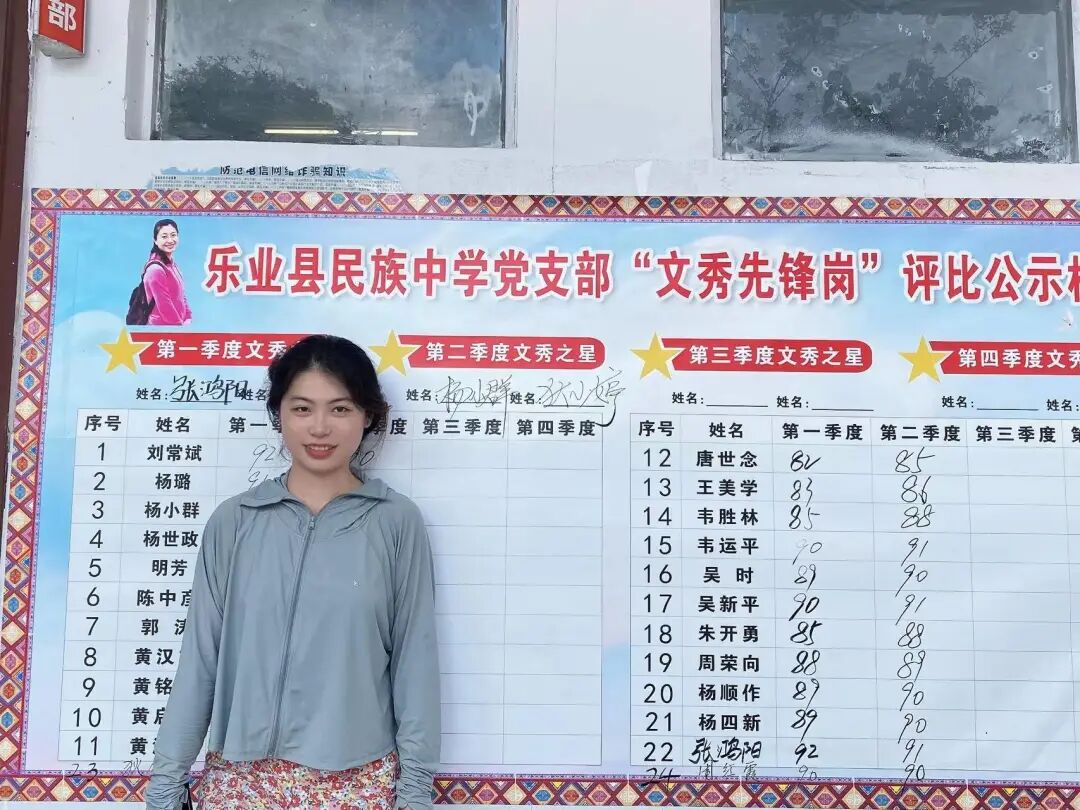 部
防范电信网络诈骗知识
乐业县民族中学党支部“文秀先锋岗”评比公示
第一季度文秀
第二季度文秀之星
第三季度文秀之星
第四季度文秀
姓名：张鸿阳 姓名
姓名：杨小群 张小婷
姓名：______ 姓名：______
姓名：______ 姓名：
序号 姓名 第一 季度 第三季度 第四季度
1 刘常斌 92
2 杨璐
3 杨小群
4 杨世政
5 明芳
6 陈中
7 郭
8 黄汉
9 黄铭
10 黄启
11 黄
23
序号 姓名 第一季度 第二季度 第三季度
12 唐世念 82 85
13 王美学 83 86
14 韦胜林 85 88
15 韦运平 90 91
16 吴时 89 90
17 吴新平 90 91
18 朱开勇 85 88
19 周荣向 88 89
20 杨顺作 89 90
21 杨四新 89 90
22 张鸿阳 92 91
24 90 90